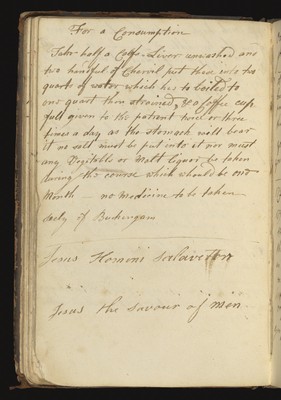 For a Consumption
Take half a Calf's Liver unwashed and
two handfuls of Chervil put these into two
quarts of water which is to boiled to
one quart then strained, & a Coffee cup
full given to the patient two or three
times a day as the stomach will bear
it no salt must be put into it nor must
any Vegitable or Malt Liquor be taken
during the course which should be one
Month — no medicine to be taken
Lady of Buckingam
Jesus Homini Salavetton
Jesus the Savour of men